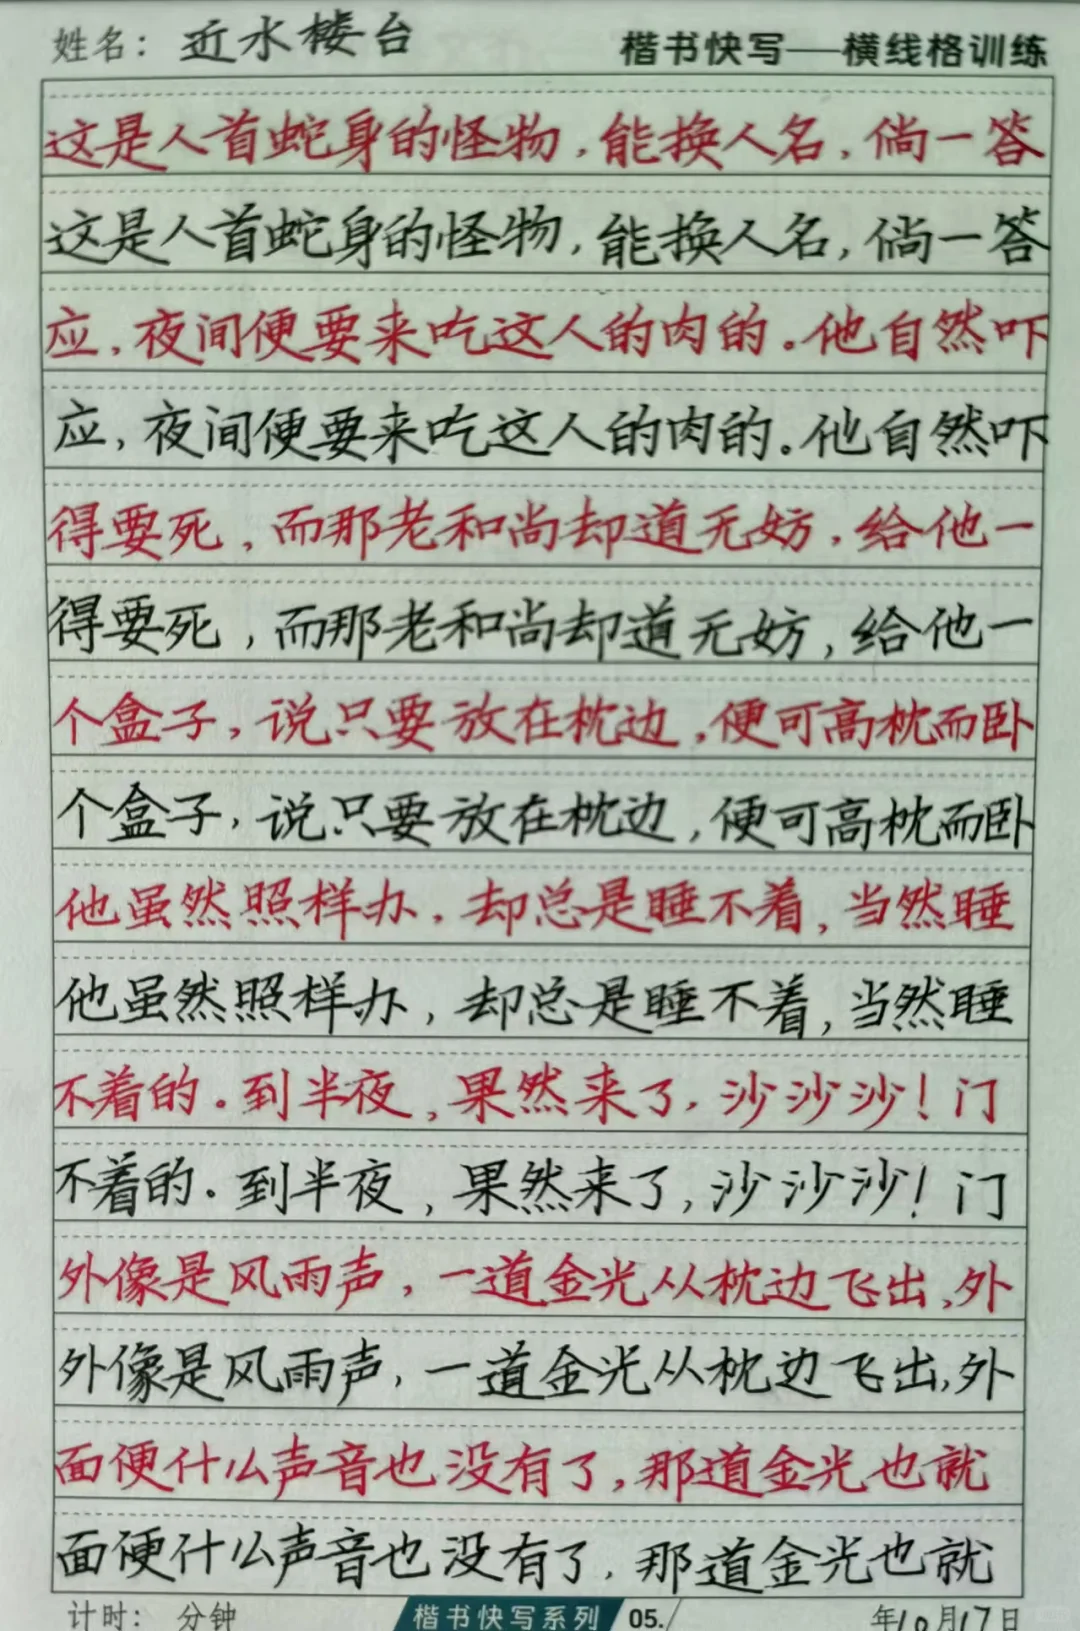 姓名：近水楼台 楷书快写——横线格训练
这是人首蛇身的怪物，能换人名，倘一答
这是人首蛇身的怪物，能换人名，倘一答
应，夜间便要来吃这人的肉的。他自然吓
应，夜间便要来吃这人的肉的。他自然吓
得要死，而那老和尚却道无妨，给他一
得要死，而那老和尚却道无妨，给他一
个盒子，说只要放在枕边，便可高枕而卧
个盒子，说只要放在枕边，便可高枕而卧
他虽然照样办，却总是睡不着，当然睡
他虽然照样办，却总是睡不着，当然睡
不着的。到半夜，果然来了，沙沙沙！门
不着的。到半夜，果然来了，沙沙沙！门
外像是风雨声，一道金光从枕边飞出，外
外像是风雨声，一道金光从枕边飞出，外
面便什么声音也没有了，那道金光也就
面便什么声音也没有了，那道金光也就
计时： 分钟 楷书快写系列 05. 年10月17日